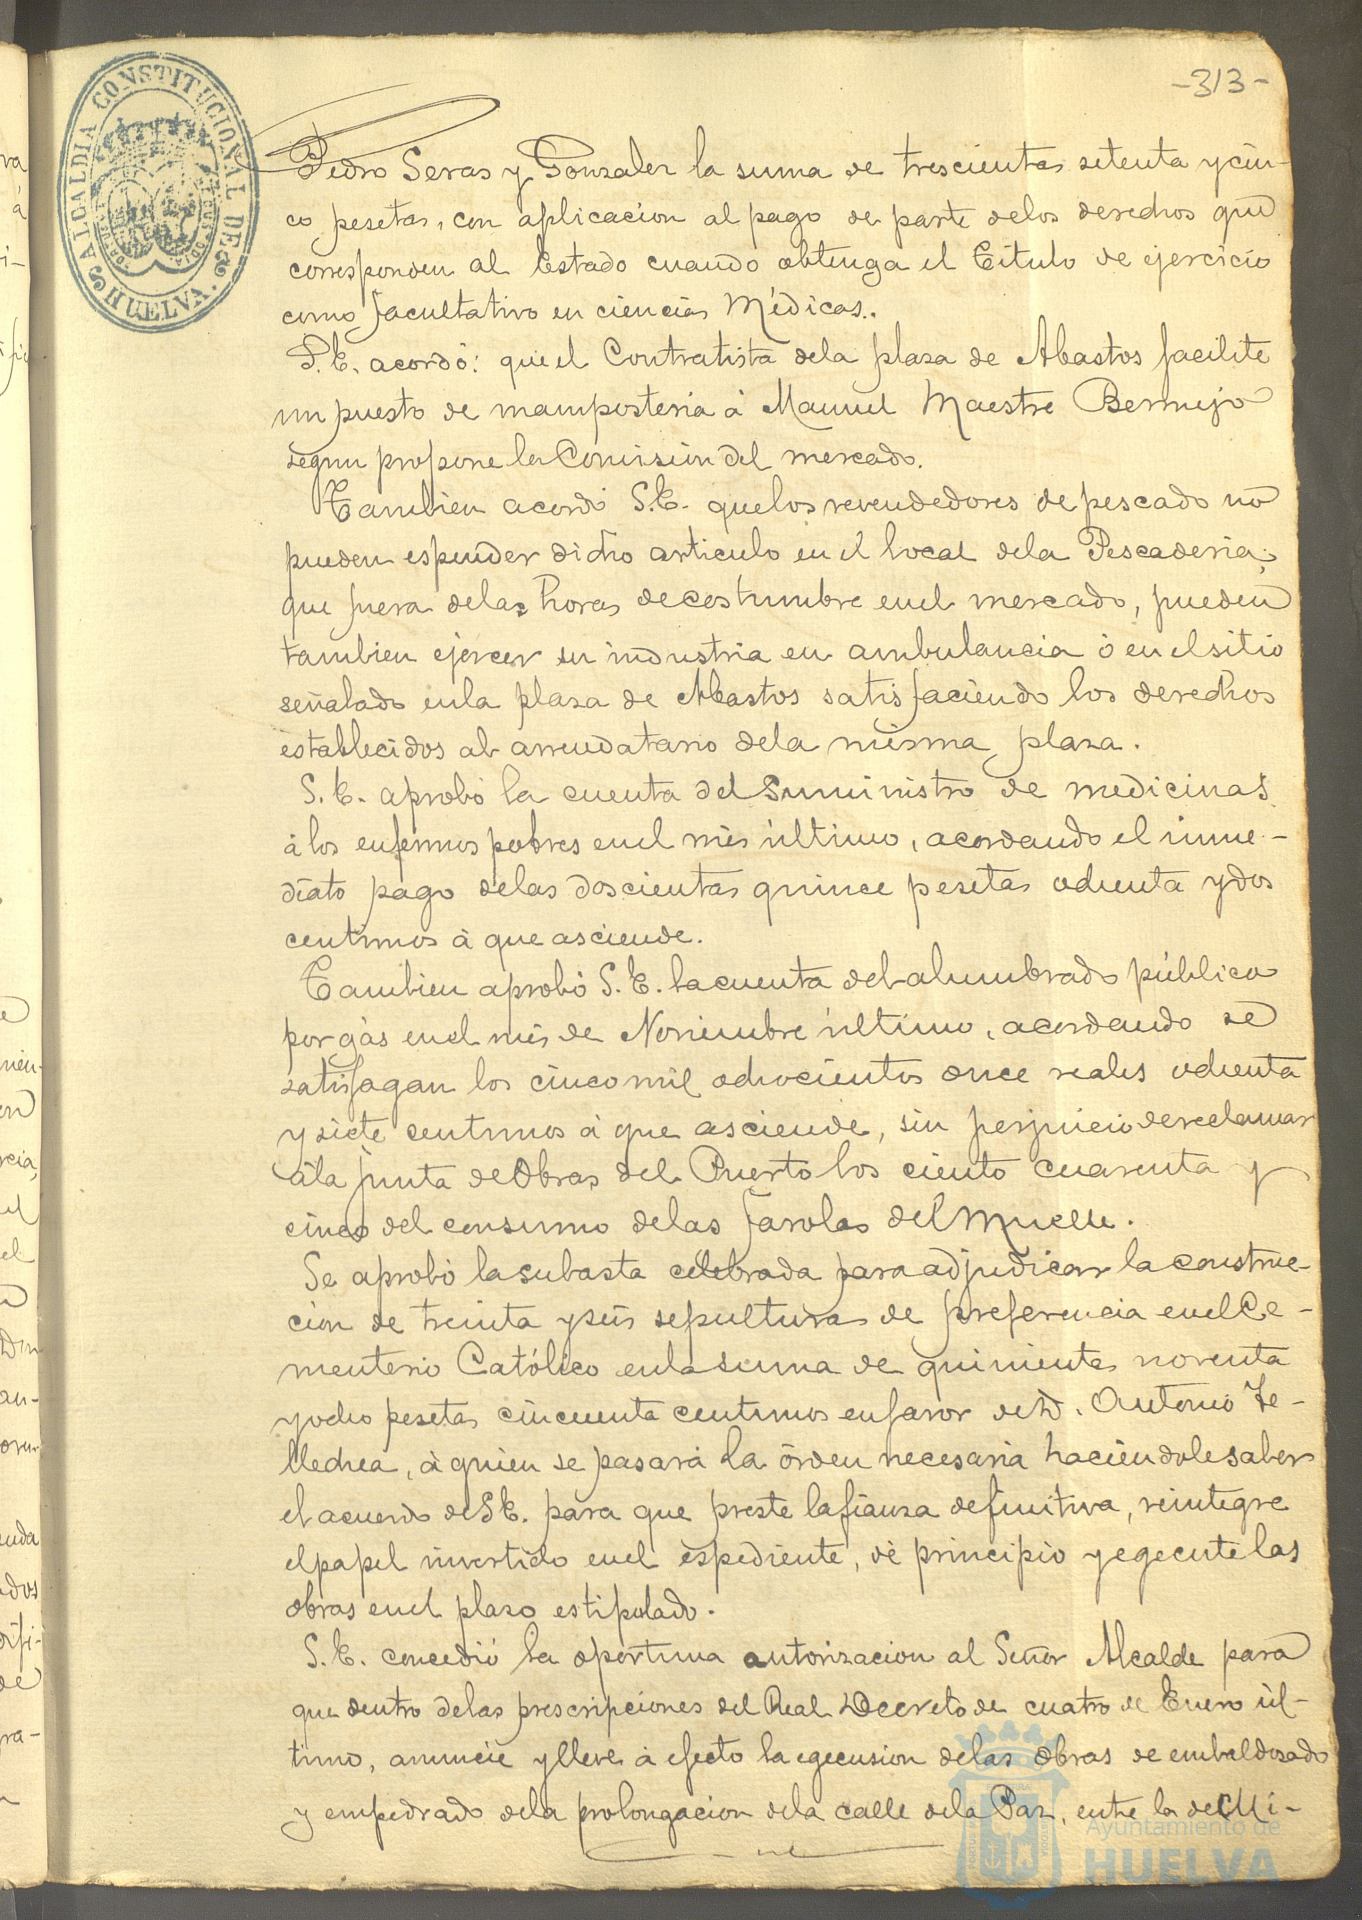 -313-
ALCALDIA CONSTITUCIONAL DE
HUELVA.
Pedro Seras y Gonzalez la suma de trescientas setenta y cin-
co pesetas, con aplicacion al pago de parte delos derechos que
corresponden al Estado cuando obtenga el Titulo de ejercicio
como facultativo en ciencias Médicas.
S.E. acordó: que el Contratista dela plaza de Abastos facilite
un puesto de mamposteria á Manuel Maestre Bermejo
segun propone la Comision del mercado.
Tambien acordó S.E. que los revendedores de pescado no
pueden espender dicho articulo en el local dela Pescaderia;
que fuera delas horas de costumbre en el mercado, pueden
tambien ejercer su industria en ambulancia ó en el sitio
señalado en la plaza de Abastos satisfaciendo los derechos
establecidos al arrendatario dela misma plaza.
S.E. aprobó la cuenta del Suministro de medicinas
á los enfermos pobres en el més último, acordando el inme-
diato pago delas doscientas quince pesetas ochenta y dos
centimos á que asciende.
Tambien aprobó S.E. la cuenta del alumbrado público
por gás en el més de Noviembre último, acordando se
satisfagan los cinco mil ochocientos once reales ochenta
y siete centimos á que asciende, sin perjuicio de reclamar
á la Junta de Obras del Puerto los ciento cuarenta y
cinco del consumo delas farolas del Muelle.
Se aprobó la subasta celebrada para adjudicar la construc-
cion de treinta y seis sepulturas de preferencia en el Ce-
menterio Católico en la suma de quinientas noventa
y ocho pesetas cincuenta centimos en favor de D. Antonio Te-
llechea, á quien se pasará la órden necesaria haciendole saber
el acuerdo de S.E. para que preste la fianza definitiva, reintegre
el papel invertido en el espediente, dé principio y egecute las
obras en el plazo estipulado.
S.E. concedió la oportuna autorizacion al Señor Alcalde para
que dentro delas prescripciones del Real Decreto de cuatro de Enero úl-
timo, anuncie y lleve á efecto la egecusion delas obras de embaldosado
y empedrado dela prolongacion dela calle dela Paz, entre la de Mi-
Ayuntamiento de
HUELVA